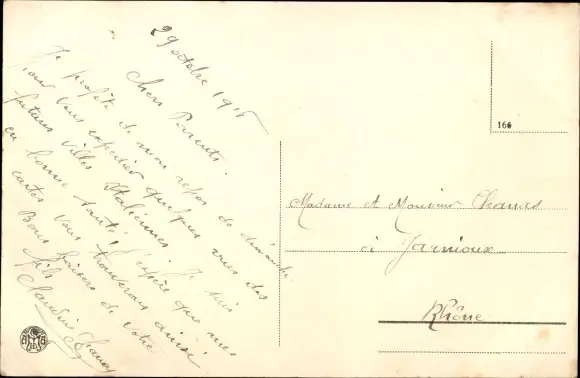 29 octobre 1916
Chers Parents.
Je profite de mon repos de dimanche
pour vous expédier quelques vues des
futures villes Italiennes. Je suis
en bonne santé, j'espère que mes
cartes vous trouverons aussi
Bons baisers de votre
fils
Claudius Chanas
166
Madame et Monsieur Chanas
à Jarnioux
Rhône